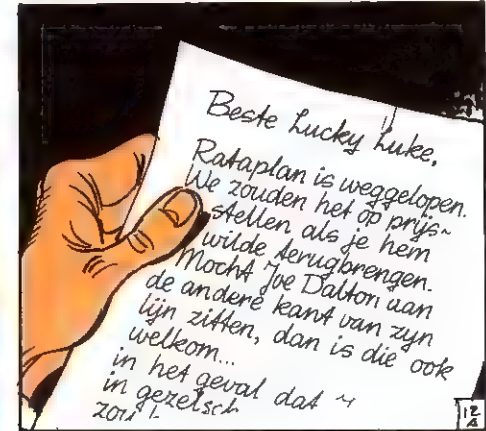 Beste Lucky Luke,
Rataplan is weggelopen.
We zouden het op prijs~
stellen als je hem
wilde terugbrengen.
Mocht Joe Dalton aan
de andere kant van zyn
lijn zitten, dan is die ook
welkom...
in het geval dat ~
in gezelsch
12
A